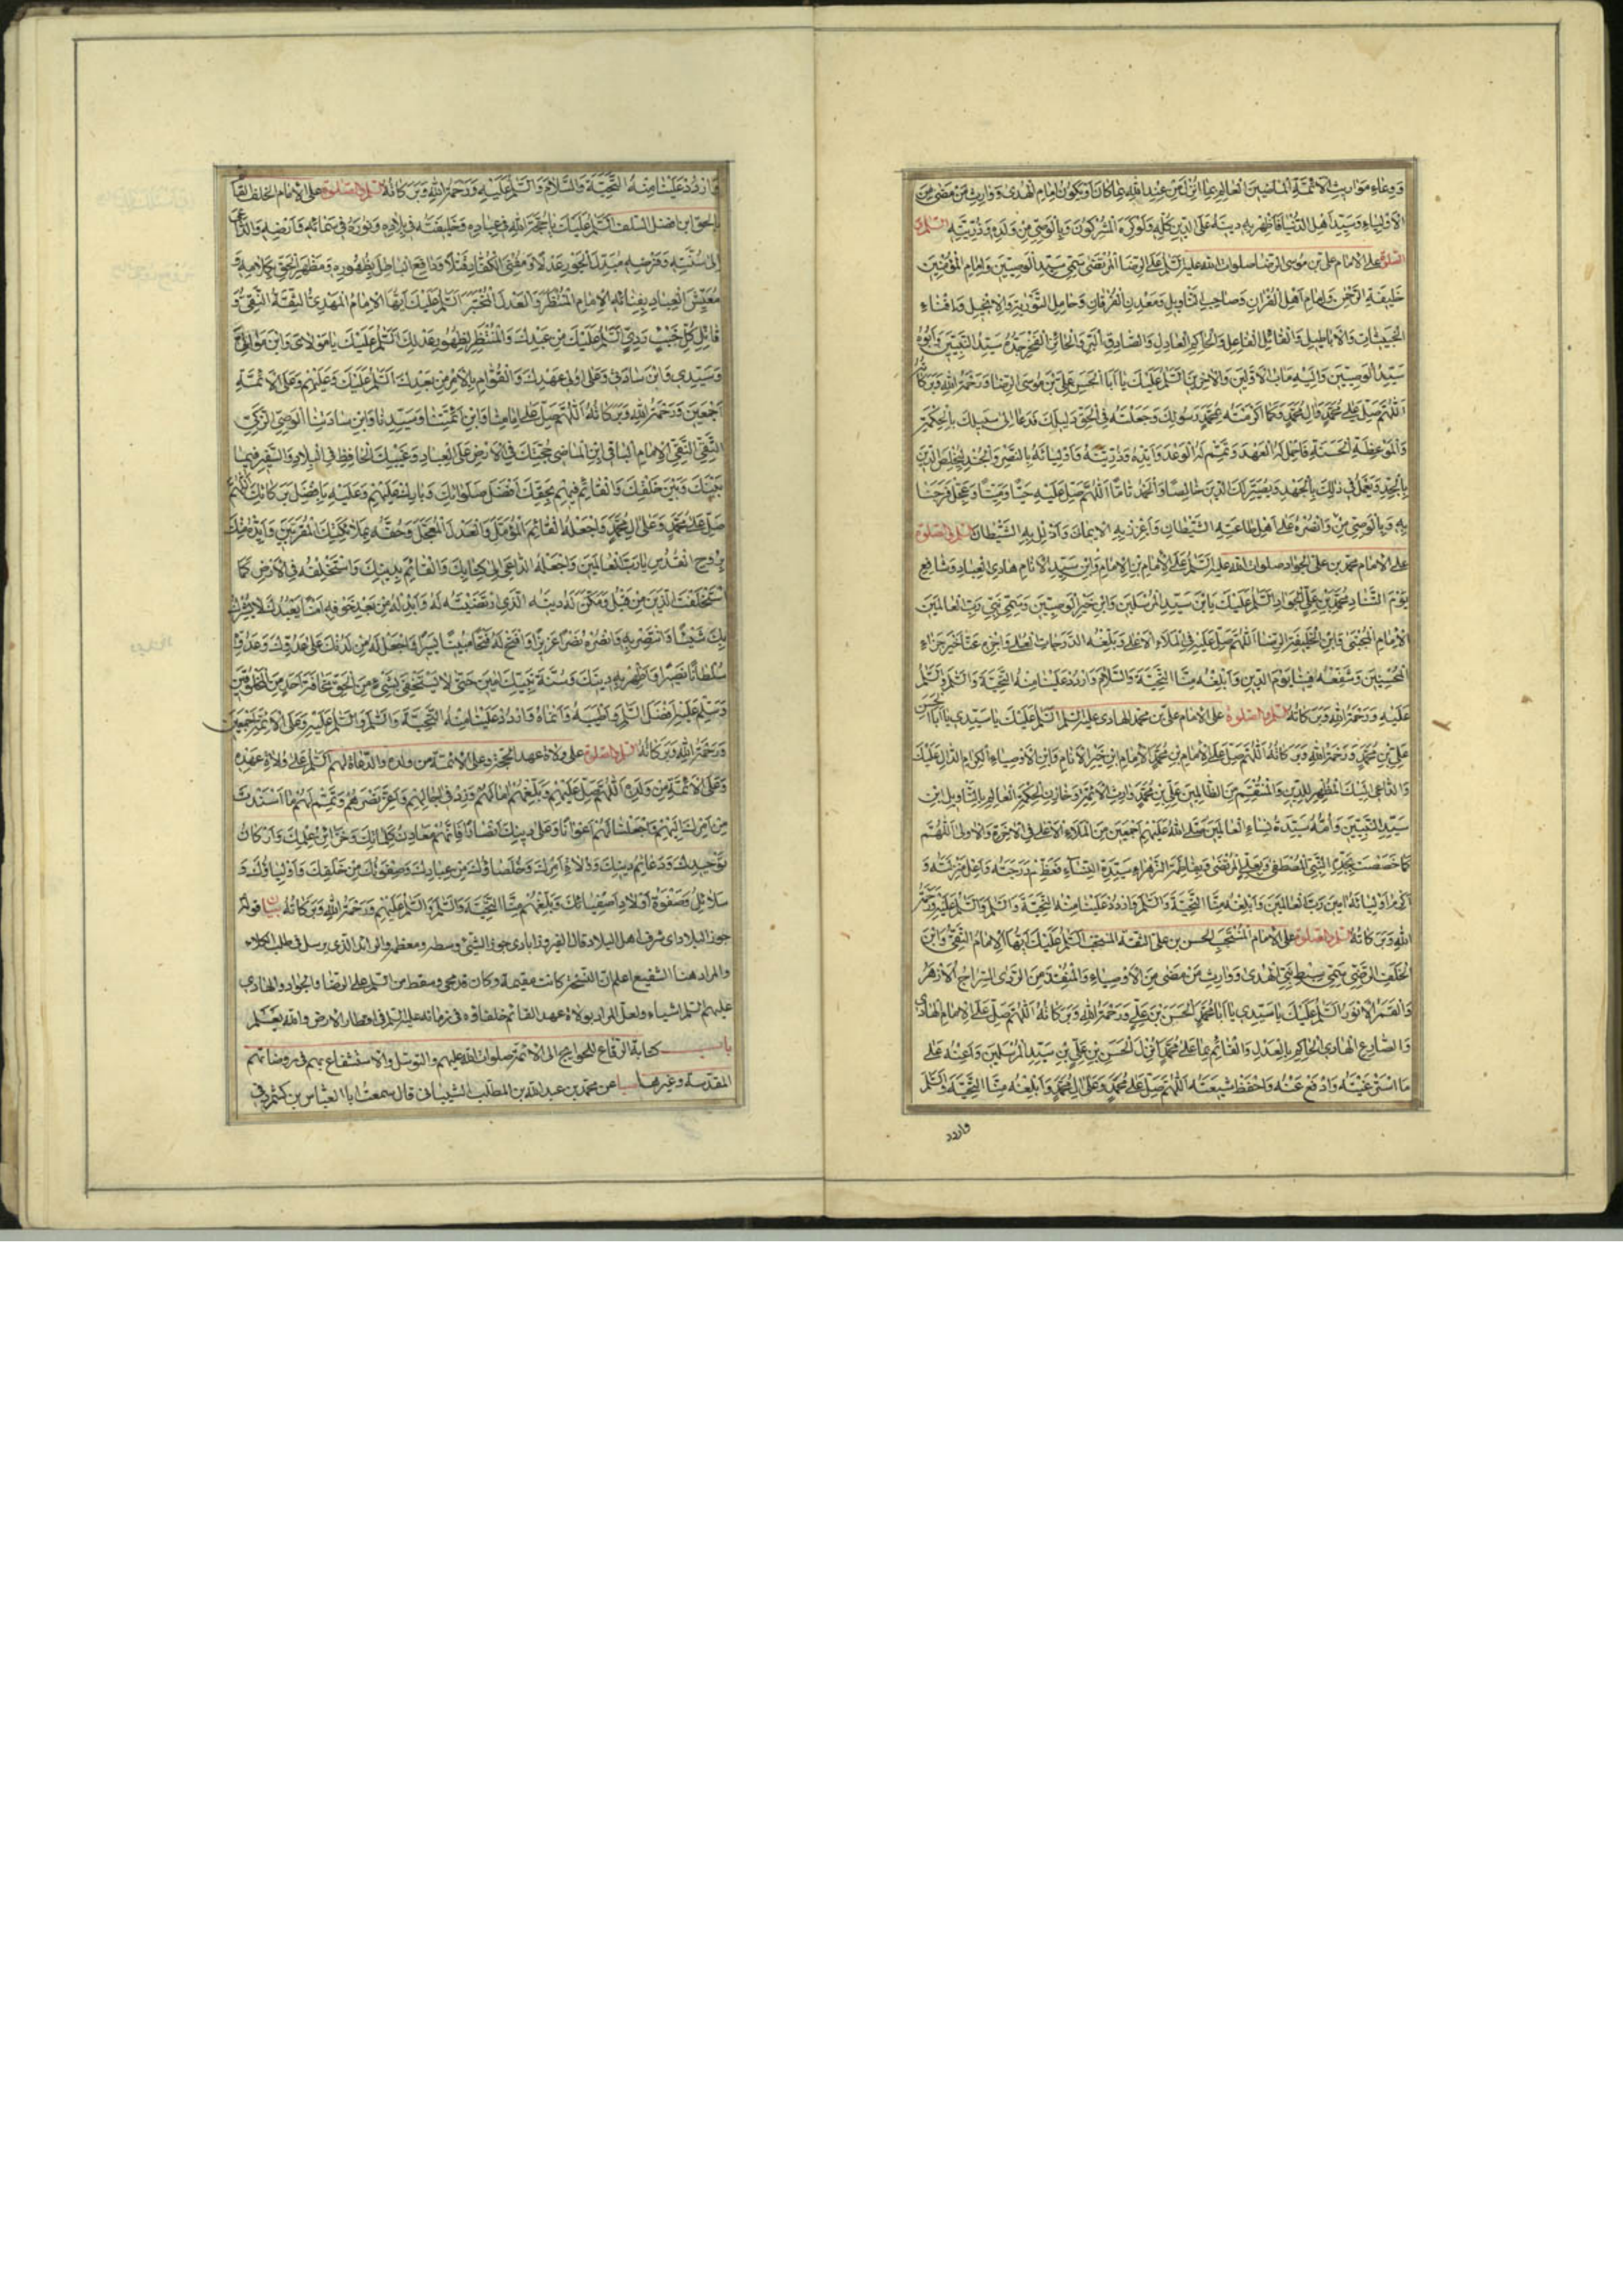 وَوِعَاءِ مَوَارِيثِ الْأَئِمَّةِ الْمَاضِينَ الْعَالِمِ بِمَا أُنْزِلَ مِنْ عِنْدِ اللهِ بِمَا كَانَ أَوْ يَكُونُ إِمَامِ الْهُدَى وَوَارِثِ مَنْ مَضَى مِنَ
الْأَوْلِيَاءِ وَسَيِّدِ أَهْلِ الدُّنْيَا فَأَظْهِرْ بِهِ دِينَهُ عَلَى الدِّينِ كُلِّهِ وَلَوْ كَرِهَ الْمُشْرِكُونَ وَبِالْوَصِيِّ مِنْ وَلَدِهِ وَذُرِّيَّتِهِ السّلم و
الصلوة على الامام على بن موسى الرضا صلوات الله عليه السَّلَمُ عَلَى الرِّضَا الْمُرْتَضَى سَمِيِّ سَيِّدِ الْوَصِيِّينَ وَإِمَامِ الْمُؤْمِنِينَ
خَلِيفَةِ الرَّحْمٰنِ وَإِمَامِ أَهْلِ الْقُرْآنِ وَصَاحِبِ التَّأْوِيلِ وَمَعْدِنِ الْفُرْقَانِ وَحَامِلِ التَّوْرٰيةِ وَالْإِنْجِيلِ وَإِفْنَاءِ
الْخَبِيثَاتِ وَالْأَبَاطِيلِ وَالْقَائِلِ الْفَاعِلِ وَالْحَاكِمِ الْعَادِلِ وَالصَّادِقِ الْبَرِّ وَالْحَائِزِ الْفَخْرِ جَدُّهُ سَيِّدُ النَّبِيِّينَ وَأَبُوهُ
سَيِّدُ الْوَصِيِّينَ وَإِلَيْهِ مَآبُ الْأَوَّلِينَ وَالْآخِرِينَ السَّلَمُ عَلَيْكَ يَا أَبَا الْحَسَنِ عَلِيَّ بْنَ مُوسَى الرِّضَا وَرَحْمَةُ اللهِ وَبَرَكَاتُهُ
اَللّٰهُمَّ صَلِّ عَلَى مُحَمَّدٍ وَآلِ مُحَمَّدٍ وَكَمَا أَكْرَمْتَهُ بِمُحَمَّدٍ رَسُولِكَ وَجَعَلْتَهُ فِي الْحَقِّ دَلِيلَكَ فَدَعَا إِلَى سَبِيلِكَ بِالْحِكْمَةِ
وَالْمَوْعِظَةِ الْحَسَنَةِ فَأَكْمِلْ لَهُ الْعَهْدَ وَتَمِّمْ لَهُ الْوَعْدَ وَأَيِّدْهُ وَذُرِّيَّتَهُ وَأَوْلِيَائَهُ بِالنَّصْرِ وَالْجُنْدِ لِيُخْلِصَ الدِّينَ
بِالْجِدِّ وَيَعْمَلَ فِي ذٰلِكَ بِالْجَهْدِ وَيُصَيِّرَ لَكَ الدِّينَ خَالِصًا وَالْحَمْدَ تَامًّا اَللّٰهُمَّ صَلِّ عَلَيْهِ حَيًّا وَمَيِّتًا وَعَجِّلْ فَرَجَنَا
بِهِ وَبِالْوَصِيِّ مِنْهُ وَانْصُرْهُ عَلَى أَهْلِ طَاعَةِ الشَّيْطَانِ وَأَعْزِزْ بِهِ الْإِيمَانَ وَأَذْلِلْ بِهِ الشَّيْطَانَ السّلم و الصّلوة
على الامام محمد بن على الجواد صلوات الله عليه السَّلَمُ عَلَى الْإِمَامِ بْنِ الْإِمَامِ وَابْنِ سَيِّدِ الْأَنَامِ هَادِي الْعِبَادِ وَشَافِعِ
يَوْمِ التَّنَادِ مُحَمَّدِ بْنِ عَلِيٍّ الْجَوَادِ السَّلَمُ عَلَيْكَ يَا بْنَ سَيِّدِ الْمُرْسَلِينَ وَابْنَ خَيْرِ الْوَصِيِّينَ وَسَمِيَّ نَبِيِّ رَبِّ الْعَالَمِينَ
الْإِمَامِ الْمُجْتَبَى وَابْنِ الْخَلِيفَةِ الرِّضَا اَللّٰهُمَّ صَلِّ عَلَيْهِ فِي الْمَلَاءِ الْأَعْلَى وَبَلِّغْهُ الدَّرَجَاتِ الْعُلَى وَاجْزِهِ عَنَّا خَيْرَ جَزَاءِ
الْمُحْسِنِينَ وَشَفِّعْهُ فِينَا يَوْمَ الدِّينِ وَأَبْلِغْهُ مِنَّا التَّحِيَّةَ وَالسَّلَامَ وَارْدُدْ عَلَيْنَا مِنْهُ التَّحِيَّةَ وَالسَّلَمَ وَالسَّلَمُ
عَلَيْهِ وَرَحْمَةُ اللهِ وَبَرَكَاتُهُ السّلم و الصلوة على الامام على بن محمد الهادى عليه السّلم السَّلَمُ عَلَيْكَ يَا سَيِّدِي يَا أَبَا الْحَسَنِ
عَلِيَّ بْنَ مُحَمَّدٍ وَرَحْمَةُ اللهِ وَبَرَكَاتُهُ اَللّٰهُمَّ صَلِّ عَلَى الْإِمَامِ بْنِ مُحَمَّدٍ الْإِمَامِ ابْنِ خَيْرِ الْأَنَامِ وَابْنِ الْأَوْصِيَاءِ الْكِرَامِ الدَّالِّ عَلَيْكَ
وَالدَّاعِي إِلَيْكَ الْمُظْهِرِ لِلدِّينِ وَالْمُنْتَقِمِ مِنَ الظَّالِمِينَ عَلِيِّ بْنِ مُحَمَّدٍ وَارِثِ الْأَئِمَّةِ وَخَازِنِ الْحِكْمَةِ الْعَالِمِ بِالتَّأْوِيلِ ابْنِ
سَيِّدِ النَّبِيِّينَ وَأُمُّهُ سَيِّدَةُ نِسَاءِ الْعَالَمِينَ صَلَّى اللهُ عَلَيْهِمْ أَجْمَعِينَ مِنَ الْمَلَاءِ الْأَعْلَى فِي الْآخِرَةِ وَالْأُولَى اَللّٰهُمَّ
كَمَا خَصَصْتَهُ بِجَدِّهِ النَّبِيِّ الْمُصْطَفَى وَبِعَلِيٍّ الْمُرْتَضَى وَبِفَاطِمَةَ الزَّهْرَاءِ سَيِّدَةِ النِّسَاءِ فَعَظِّمْ دَرَجَتَهُ وَأَعْلِ مَرْتَبَتَهُ وَ
أَكْرِمْ أَوْلِيَائَهُ آمِينَ رَبَّ الْعَالَمِينَ وَأَبْلِغْهُ مِنَّا التَّحِيَّةَ وَالسَّلَمَ وَارْدُدْ عَلَيْنَا مِنْهُ التَّحِيَّةَ وَالسَّلَمَ وَالسَّلَمُ عَلَيْهِ وَرَحْمَةُ
اللهِ وَبَرَكَاتُهُ السّلم و الصلوة على الامام المنتجب الحسن بن على الثقة المنتخب السَّلَمُ عَلَيْكَ أَيُّهَا الْإِمَامُ النَّقِيُّ وَابْنَ
الْخَلَفِ الرَّضِيِّ سَمِيَّ سِبْطِ نَبِيِّ الْهُدَى وَوَارِثَ مَنْ مَضَى مِنَ الْأَوْصِيَاءِ وَالْمُنْقِذَ مِنَ الرَّدَى السِّرَاجُ الْأَزْهَرُ
وَالْقَمَرُ الْأَنْوَرُ السَّلَمُ عَلَيْكَ يَا سَيِّدِي يَا أَبَا مُحَمَّدٍ الْحَسَنَ بْنَ عَلِيٍّ وَرَحْمَةُ اللهِ وَبَرَكَاتُهُ اَللّٰهُمَّ صَلِّ عَلَى الْإِمَامِ الْهَادِي
وَالصَّادِعِ الْهَادِي الْحَاكِمِ بِالْعَدْلِ وَالْقَائِمِ بِمَا عَلَى مُحَمَّدٍ أُنْزِلَ الْحَسَنِ بْنِ عَلِيِّ بْنِ سَيِّدِ الْمُرْسَلِينَ وَأَعِنْهُ عَلَى
مَا اسْتَرْعَيْتَهُ وَادْفَعْ عَنْهُ وَاحْفَظْ شِيعَتَهُ اَللّٰهُمَّ صَلِّ عَلَى مُحَمَّدٍ وَعَلَى آلِ مُحَمَّدٍ وَأَبْلِغْهُ مِنَّا التَّحِيَّةَ وَالسَّلَمَ
واردد
وَارْدُدْ عَلَيْنَا مِنْهُ التَّحِيَّةَ وَالسَّلَامَ وَالسَّلَمُ عَلَيْهِ وَرَحْمَةُ اللهِ وَبَرَكَاتُهُ السّلم و الصلوة على الامام الخلف القائم
بالحق ابن افضل السلف السَّلَمُ عَلَيْكَ يَا حُجَّةَ اللهِ فِي عِبَادِهِ وَخَلِيفَتَهُ فِي بِلَادِهِ وَنُورَهُ فِي سَمَائِهِ وَأَرْضِهِ وَالدَّاعِي
إِلَى سُنَّتِهِ وَفَرْضِهِ مُبَدِّلَ الْجَوْرِ عَدْلًا وَمُفْنِيَ الْكُفَّارِ قَتْلًا وَدَافِعَ الْبَاطِلِ بِظُهُورِهِ وَمُظْهِرَ الْحَقِّ بِكَلَامِهِ وَ
مُعَيِّشَ الْعِبَادِ بِفِنَائِهِ الْإِمَامَ الْمُنْتَظَرَ وَالْعَدْلَ الْمُخْتَبَرَ السَّلَمُ عَلَيْكَ أَيُّهَا الْإِمَامُ الْمَهْدِيُّ الثِّقَةُ النَّقِيُّ وَ
قَاتِلَ كُلِّ خَبِيثٍ رَدِيٍّ السَّلَمُ عَلَيْكَ مِنْ عَبْدِكَ وَالْمُنْتَظِرِ لِظُهُورِ عَدْلِكَ السَّلَمُ عَلَيْكَ يَا مَوْلَايَ وَابْنَ مَوَالِيَّ
وَسَيِّدِي وَابْنَ سَادَتِي وَعَلَى أُولِي عَهْدِكَ وَالْقُوَّامِ بِالْأَمْرِ مِنْ بَعْدِكَ السَّلَمُ عَلَيْكَ وَعَلَيْهِمْ وَعَلَى الْأَئِمَّةِ
أَجْمَعِينَ وَرَحْمَةُ اللهِ وَبَرَكَاتُهُ اَللّٰهُمَّ صَلِّ عَلَى إِمَامِنَا وَابْنِ أَئِمَّتِنَا وَسَيِّدِنَا وَابْنِ سَادَتِنَا الْوَصِيِّ الزَّكِيِّ
التَّقِيِّ النَّقِيِّ الْإِمَامِ الْبَاقِي ابْنِ الْمَاضِي حُجَّتِكَ فِي الْأَرْضِ عَلَى الْعِبَادِ وَغَيْبِكَ الْحَافِظِ فِي الْبِلَادِ وَالسَّفِيرِ فِيمَا
بَيْنَكَ وَبَيْنَ خَلْقِكَ وَالْقَائِمِ فِيهِمْ بِحَقِّكَ أَفْضَلَ صَلَوَاتِكَ وَبَارِكْ عَلَيْهِمْ وَعَلَيْهِ بِأَفْضَلِ بَرَكَاتِكَ اَللّٰهُمَّ
صَلِّ عَلَى مُحَمَّدٍ وَعَلَى آلِ مُحَمَّدٍ وَاجْعَلْهُ الْقَائِمَ الْمُؤَمَّلَ وَالْعَدْلَ الْمُعَجَّلَ وَحُفَّهُ بِمَلَائِكَتِكَ الْمُقَرَّبِينَ وَأَيِّدْهُ مِنْكَ
بِرُوحِ الْقُدُسِ يَا رَبَّ الْعَالَمِينَ وَاجْعَلْهُ الدَّاعِيَ إِلَى كِتَابِكَ وَالْقَائِمَ بِدِينِكَ وَاسْتَخْلِفْهُ فِي الْأَرْضِ كَمَا
اسْتَخْلَفْتَ الَّذِينَ مِنْ قَبْلُ وَمَكِّنْ لَهُ دِينَهُ الَّذِي ارْتَضَيْتَهُ لَهُ وَأَبْدِلْهُ مِنْ بَعْدِ خَوْفِهِ أَمْنًا يَعْبُدُكَ لَا يُشْرِكُ
بِكَ شَيْئًا وَانْتَصِرْ بِهِ وَانْصُرْهُ نَصْرًا عَزِيزًا وَافْتَحْ لَهُ فَتْحًا مُبِينًا يَسِيرًا وَاجْعَلْ لَهُ مِنْ لَدُنْكَ عَلَى عَدُوِّكَ وَعَدُوِّهِ
سُلْطَانًا نَصِيرًا وَأَظْهِرْ بِهِ دِينَكَ وَسُنَّةَ نَبِيِّكَ آمِينَ حَتَّى لَا يَسْتَخْفِيَ بِشَيْءٍ مِنَ الْحَقِّ مَخَافَةَ أَحَدٍ مِنَ الْخَلْقِ
وَسَلِّمْ عَلَيْهِ أَفْضَلَ السَّلَمِ وَأَطْيَبَهُ وَأَنْمَاهُ وَارْدُدْ عَلَيْنَا مِنْهُ التَّحِيَّةَ وَالسَّلَمَ وَالسَّلَمُ عَلَيْهِ وَعَلَى الْأَئِمَّةِ أَجْمَعِينَ
وَرَحْمَةُ اللهِ وَبَرَكَاتُهُ السّلم و الصلوة على ولاة عهد الحجة وعلى الائمة من ولده والدعاء لهم السَّلَمُ عَلَى وُلَاةِ عَهْدِهِ
وَعَلَى الْأَئِمَّةِ مِنْ وُلْدِهِ اَللّٰهُمَّ صَلِّ عَلَيْهِمْ وَبَلِّغْهُمْ آمَالَهُمْ وَزِدْ فِي آجَالِهِمْ وَأَعِزَّ نَصْرَهُمْ وَتَمِّمْ لَهُمْ مَا أَسْنَدْتَ
مِنْ أَمْرِكَ إِلَيْهِمْ وَاجْعَلْنَا لَهُمْ أَعْوَانًا وَعَلَى دِينِكَ أَنْصَارًا فَإِنَّهُمْ مَعَادِنُ كَلِمَاتِكَ وَخَزَائِنُ عِلْمِكَ وَأَرْكَانُ
تَوْحِيدِكَ وَدَعَائِمُ دِينِكَ وَوُلَاةُ أَمْرِكَ وَخُلَصَاؤُكَ مِنْ عِبَادِكَ وَصَفْوَتُكَ مِنْ خَلْقِكَ وَأَوْلِيَاؤُكَ وَ
سَلَائِلُ وَصَفْوَةُ أَوْلَادِ أَصْفِيَائِكَ وَبَلِّغْهُمْ مِنَّا التَّحِيَّةَ وَالسَّلَمَ وَالسَّلَمُ عَلَيْهِمْ وَرَحْمَةُ اللهِ وَبَرَكَاتُهُ بيان قوله
جوز البلاد اى شرف اهل البلاد قال الفيروزابادى جوز الشئ وسطه ومعظمه والرائد الذى يرسل فى طلب الكلاء
والمراد هنا الشفيع اعلم انّ النسخة كانت سقيمة وكان قد محى وسقط من السّلم على الرضا والجواد والهادى
عليهم السّلم اشياء ولعل المراد بولاة عهد القائم خلفاؤه فى زمانه عليه السّلم فى اقطار الارض والله يعلم
باب كتابة الرقاع للحوائج الى الائمة صلوات الله عليهم والتوسل والاستشفاع بهم فى روضاتهم
المقدسة وغيرها عن محمد بن عبد الله بن المطلب الشيبانى قال سمعت ابا العباس بن كشمرد فى